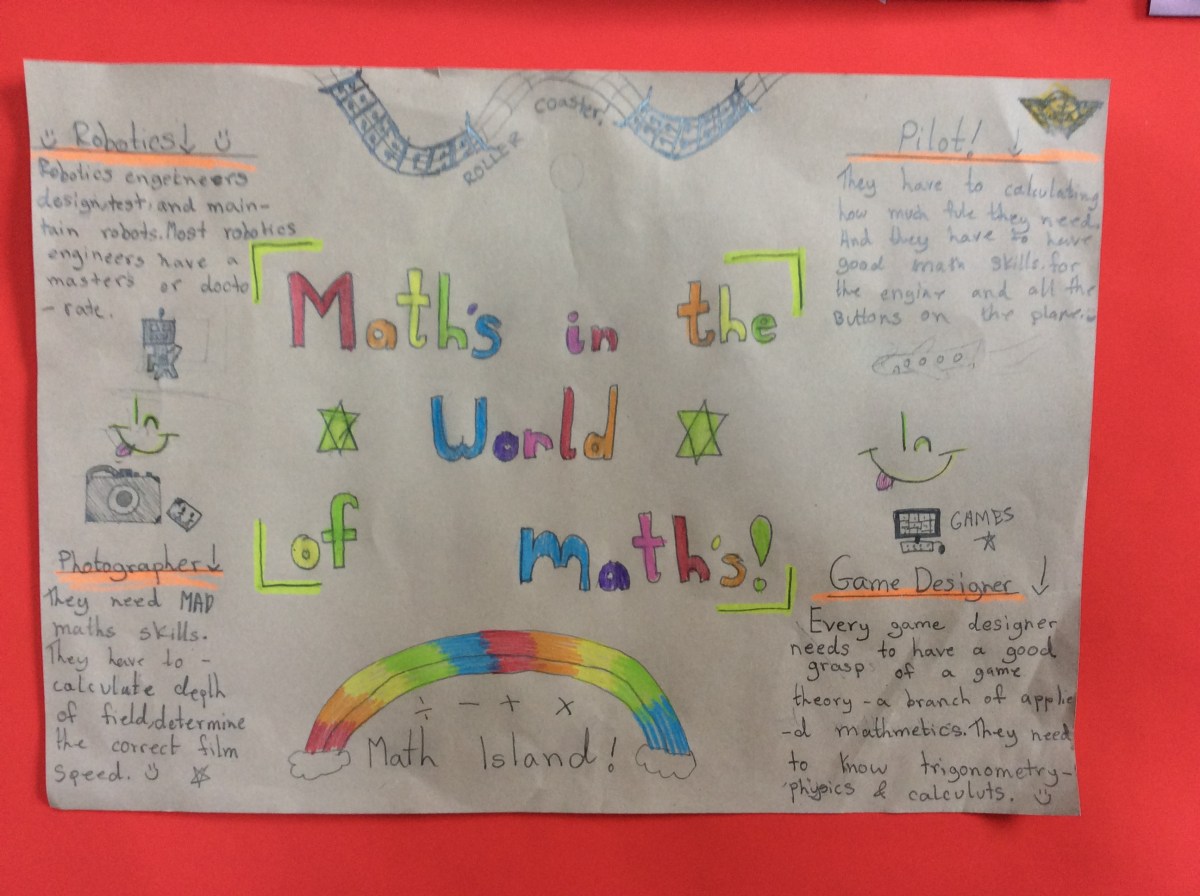 ROLLER coaster!
Robotics↓
Robotics engetneers
design,test, and main-
tain robots. Most robotics
engineers have a
masters or docto
-rate.
Pilot! ↓
They have to calculating
how much fule they need.
And they have to have
good math skills. for
the engine and all the
Buttons on the plane.
Math's in the
World
of math's!
Photographer↓
They need MAD
maths skills.
They have to -
calculate depth
of field,determine
the correct film
speed.
GAMES
Game Designer ↓
Every game designer
needs to have a good
grasp of a game
theory - a branch of applie
-d mathmetics. They need
to know trigonometry-
physics & calculuts.
÷ - + x
Math Island!